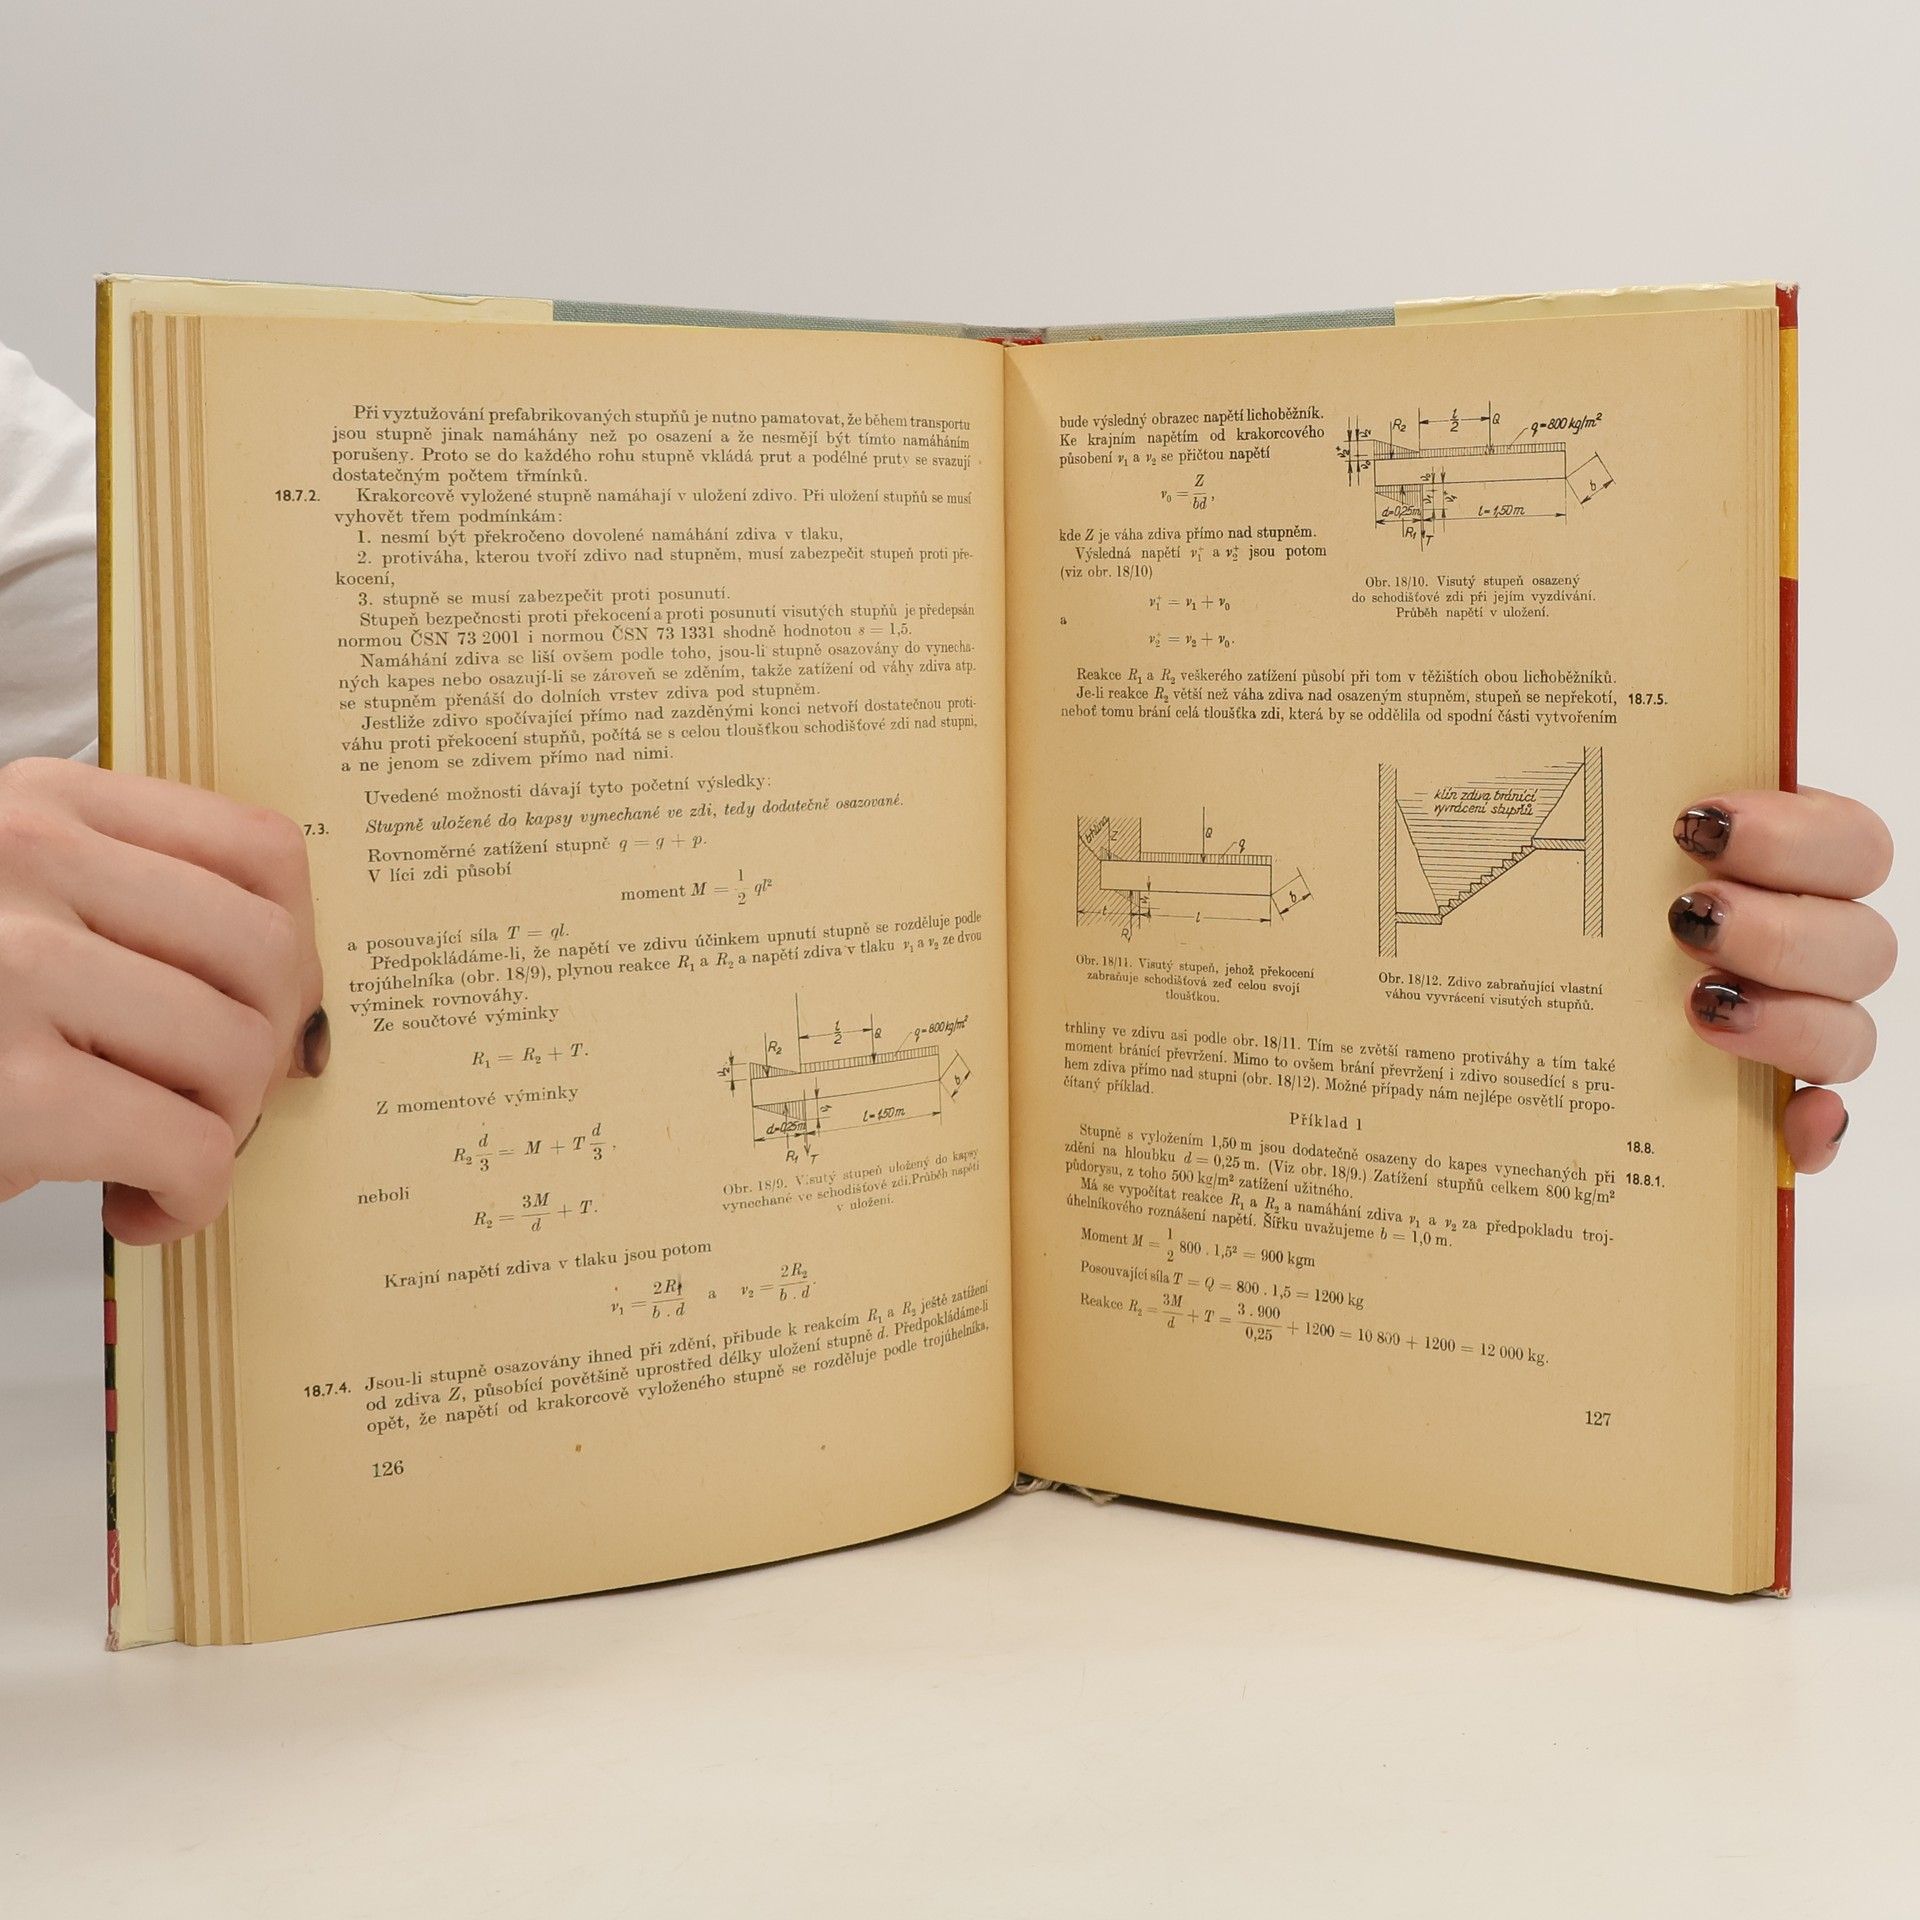 Při vyztužování prefabrikovaných stupňů je nutno pamatovat, že během transportu
jsou stupně jinak namáhány než po osazení a že nesmějí být tímto namáháním
porušeny. Proto se do každého rohu stupně vkládá prut a podélné pruty se svazují
dostatečným počtem třmínků.
18.7.2. Krakorcově vyložené stupně namáhají v uložení zdivo. Při uložení stupňů se musí
vyhovět třem podmínkám:
1. nesmí být překročeno dovolené namáhání zdiva v tlaku,
2. protiváha, kterou tvoří zdivo nad stupněm, musí zabezpečit stupeň proti pře-
kocení,
3. stupně se musí zabezpečit proti posunutí.
Stupeň bezpečnosti proti překocení a proti posunutí visutých stupňů je předepsán
normou ČSN 73 2001 i normou ČSN 73 1331 shodně hodnotou s = 1,5.
Namáhání zdiva se liší ovšem podle toho, jsou-li stupně osazovány do vynecha-
ných kapes nebo osazují-li se zároveň se zděním, takže zatížení od váhy zdiva atp.
se stupněm přenáší do dolních vrstev zdiva pod stupněm.
Jestliže zdivo spočívající přímo nad zazděnými konci netvoří dostatečnou proti-
váhu proti překocení stupňů, počítá se s celou tloušťkou schodišťové zdi nad stupni,
a ne jenom se zdivem přímo nad nimi.
Uvedené možnosti dávají tyto početní výsledky:
7.3. Stupně uložené do kapsy vynechané ve zdi, tedy dodatečně osazované.
Rovnoměrné zatížení stupně q = g + p.
V líci zdi působí
moment M = 1/2 ql²
a posouvající síla T = ql.
Předpokládáme-li, že napětí ve zdivu účinkem upnutí stupně se rozděluje podle
trojúhelníka (obr. 18/9), plynou reakce R₁ a R₂ a napětí zdiva v tlaku ν₁ a ν₂ ze dvou
výminek rovnováhy.
Ze součtové výminky
R₁ = R₂ + T.
Z momentové výminky
R₂ d/3 = M + T d/3,
neboli
R₂ = 3M/d + T.
R₂ l/2 Q q=800kg/m²
b
d=0,25m l=1,50m
R₁ T
Obr. 18/9. Visutý stupeň uložený do kapsy
vynechané ve schodišťové zdi. Průběh napětí
v uložení.
Krajní napětí zdiva v tlaku jsou potom
ν₁ = 2R₁/b.d a ν₂ = 2R₂/b.d.
18.7.4. Jsou-li stupně osazovány ihned při zdění, přibude k reakcím R₁ a R₂ ještě zatížení
od zdiva Z, působící povětšině uprostřed délky uložení stupně d. Předpokládáme-li
opět, že napětí od krakorcově vyloženého stupně se rozděluje podle trojúhelníka,
126
bude výsledný obrazec napětí lichoběžník.
Ke krajním napětím od krakorcového
působení ν₁ a ν₂ se přičtou napětí
ν₀ = Z/bd,
kde Z je váha zdiva přímo nad stupněm.
Výsledná napětí ν₁⁺ a ν₂⁺ jsou potom
(viz obr. 18/10)
ν₁⁺ = ν₁ + ν₀
a
ν₂⁺ = ν₂ + ν₀.
R₂ l/2 Q q=800kg/m²
b
d=0,25m l=1,50m
R₁ T
Obr. 18/10. Visutý stupeň osazený
do schodišťové zdi při jejím vyzdívání.
Průběh napětí v uložení.
Reakce R₁ a R₂ veškerého zatížení působí při tom v těžištích obou lichoběžníků.
Je-li reakce R₂ větší než váha zdiva nad osazeným stupněm, stupeň se nepřekotí, 18.7.5.
neboť tomu brání celá tloušťka zdi, která by se oddělila od spodní části vytvořením
trhlina Z Q q
b
t l
R₁
Obr. 18/11. Visutý stupeň, jehož překocení
zabraňuje schodišťová zeď celou svojí
tloušťkou.
klín zdiva bránící
vyvrácení stupňů
Obr. 18/12. Zdivo zabraňující vlastní
váhou vyvrácení visutých stupňů.
trhliny ve zdivu asi podle obr. 18/11. Tím se zvětší rameno protiváhy a tím také
moment bránící převržení. Mimo to ovšem brání převržení i zdivo sousedící s pru-
hem zdiva přímo nad stupni (obr. 18/12). Možné případy nám nejlépe osvětlí propo-
čítaný příklad.
Příklad 1 18.8.
Stupně s vyložením 1,50 m jsou dodatečně osazeny do kapes vynechaných při 18.8.1.
zdění na hloubku d = 0,25 m. (Viz obr. 18/9.) Zatížení stupňů celkem 800 kg/m²
půdorysu, z toho 500 kg/m² zatížení užitného.
Má se vypočítat reakce R₁ a R₂ a namáhání zdiva ν₁ a ν₂ za předpokladu troj-
úhelníkového roznášení napětí. Šířku uvažujeme b = 1,0 m.
Moment M = 1/2 800 . 1,5² = 900 kgm
Posouvající síla T = Q = 800 . 1,5 = 1200 kg
Reakce R₂ = 3M/d + T = 3 . 900/0,25 + 1200 = 10 800 + 1200 = 12 000 kg.
127